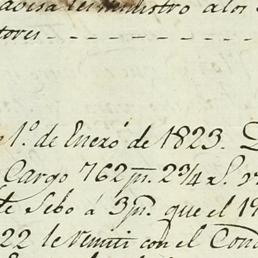 ministro a los
tores
1º de Enero de 1823.
Cargo 762 p.s 2 3/4 r.s
de Sebo á 3 p.s que el 1
22 le remiti con el Cond